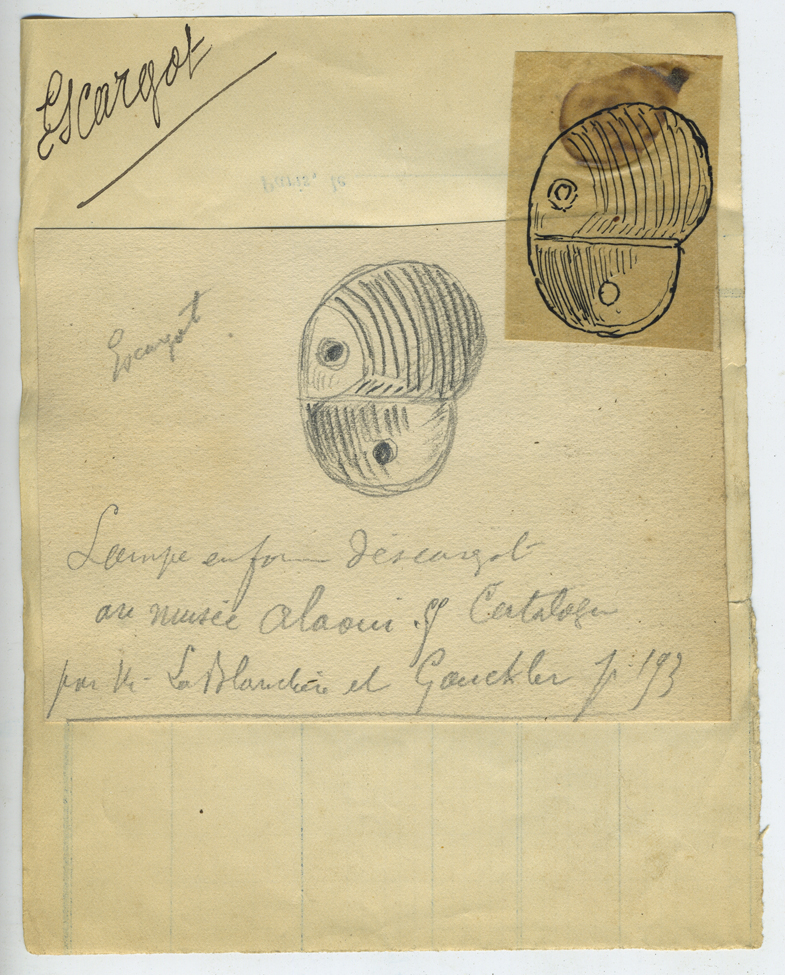 Escargot
Paris, le
Escargot
Lampe en forme d'escargot
au musée Alaoui. Cf Catalogue
par M. La Blanchère et Gauckler p. 193